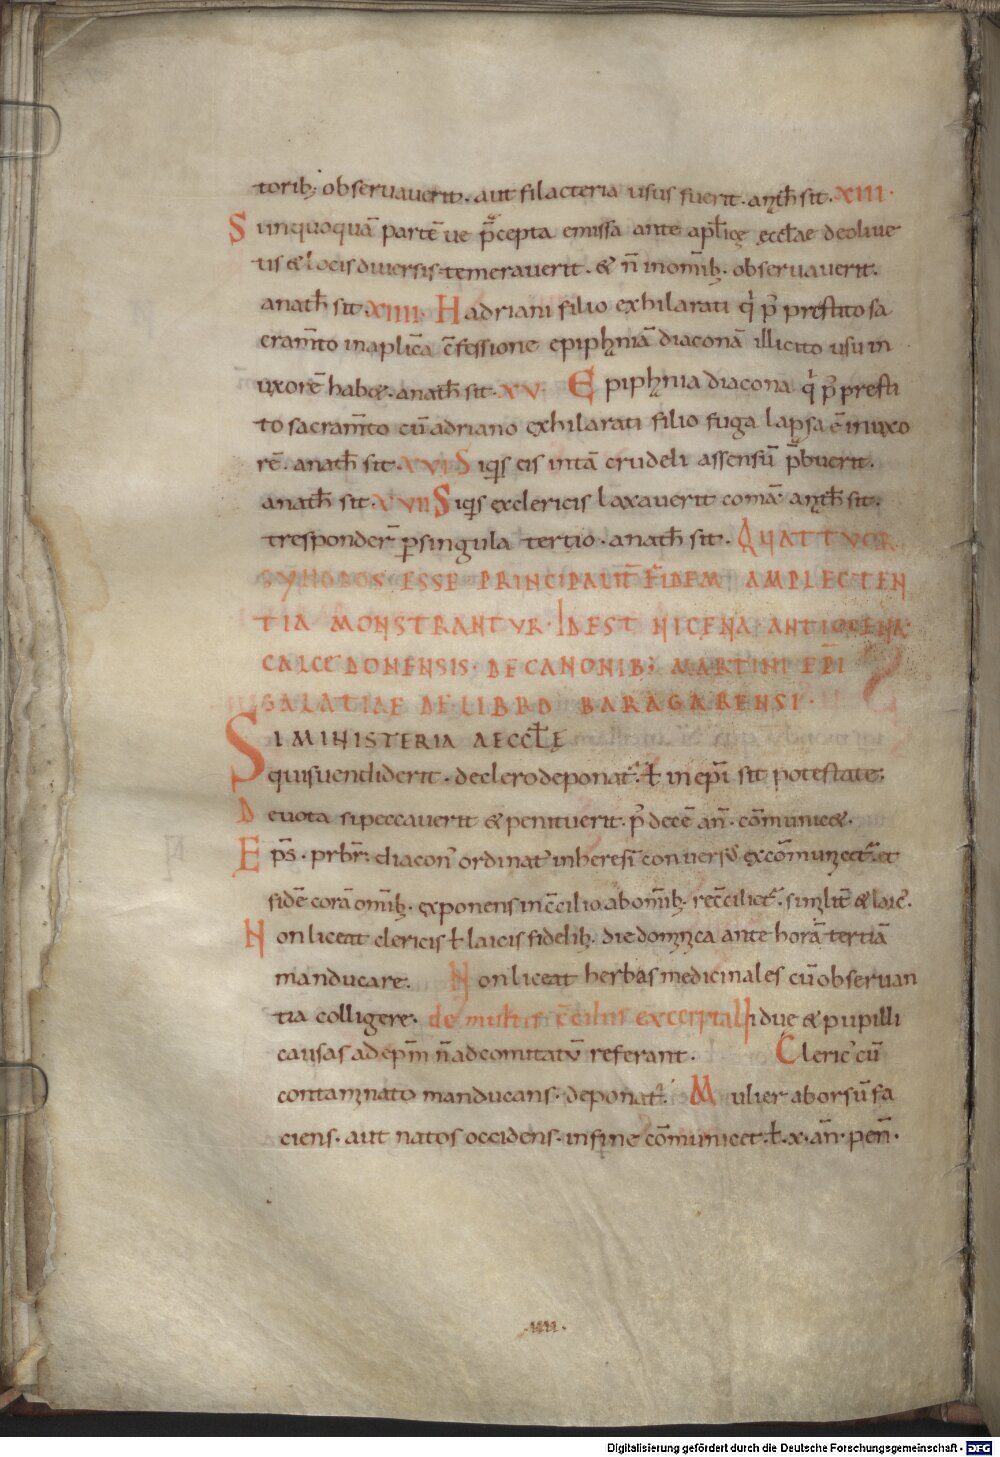 torib; observauerit. aut filacteria usus fuerit. anath sit. XIII.
Si inquoquā partē ue p̄cepta emissa ante aplicę ęcclae deoliue
tis & locis diuersis temerauerit. & n̄ inomīb; obseruauerit.
anath sit. XIIII. Hadriani filio exhilarati q̇ p̄ prestito sa
cram̄to inaplica c̄fessione epiphaniā diaconā illicito usu in
uxorē hab&. anath sit. XV. Epiphania diacona q̇ p̄ presti
to sacram̄to cū adriano exhilarati filio fuga lapsa ē inuxo
rē. anath sit. XVI Siquis eis intā crudeli assensū p̄buerit.
anath sit. XVII Siquis exclericis laxauerit comā. anath sit.
&responder̄ p̱singula tertio. anath sit. QUATTVOR
SYNODOS ESSE PRINCIPALIT̄ FIDEM AMPLECTEN
TIA MONSTRANTVR. IDEST NICENA. ANTIOCENA.
CALCEDONENSIS. DE CANONIB; MARTINI EPI
GALATIAE DE LIBRO BARAGARENSI.
SI MINISTERIA AECCLĘ
quisuendiderit. declero deponat̄. ł in epi sit potestate.
Deuota sipeccauerit & penituerit. p̄ decē an̄. cōmunic&.
Eps. prbr. diacon' ordinat' inheresi conuersus excōmunicet. et
sidē corā omīb; exponens inc̄cilio abomīb; rec̄ciliet. similit̄ & laic'.
Non liceat clericis ł laicis fidelib; die dominica ante horā tertiā
manducare. Non liceat herbas medicinales cū obseruan
tia colligere. de multis c̄ciliis excerpta Uidue & pupilli
causas ad epm̄ n̄ ad comitatū referant. Cleric' cū
contaminato manducans. deponat̄. Mulier aborsū fa
ciens. aut natos occidens. infine cōmunicet. ł. x. an̄. pen̄.
.IIII.
Digitalisierung gefördert durch die Deutsche Forschungsgemeinschaft - DFG